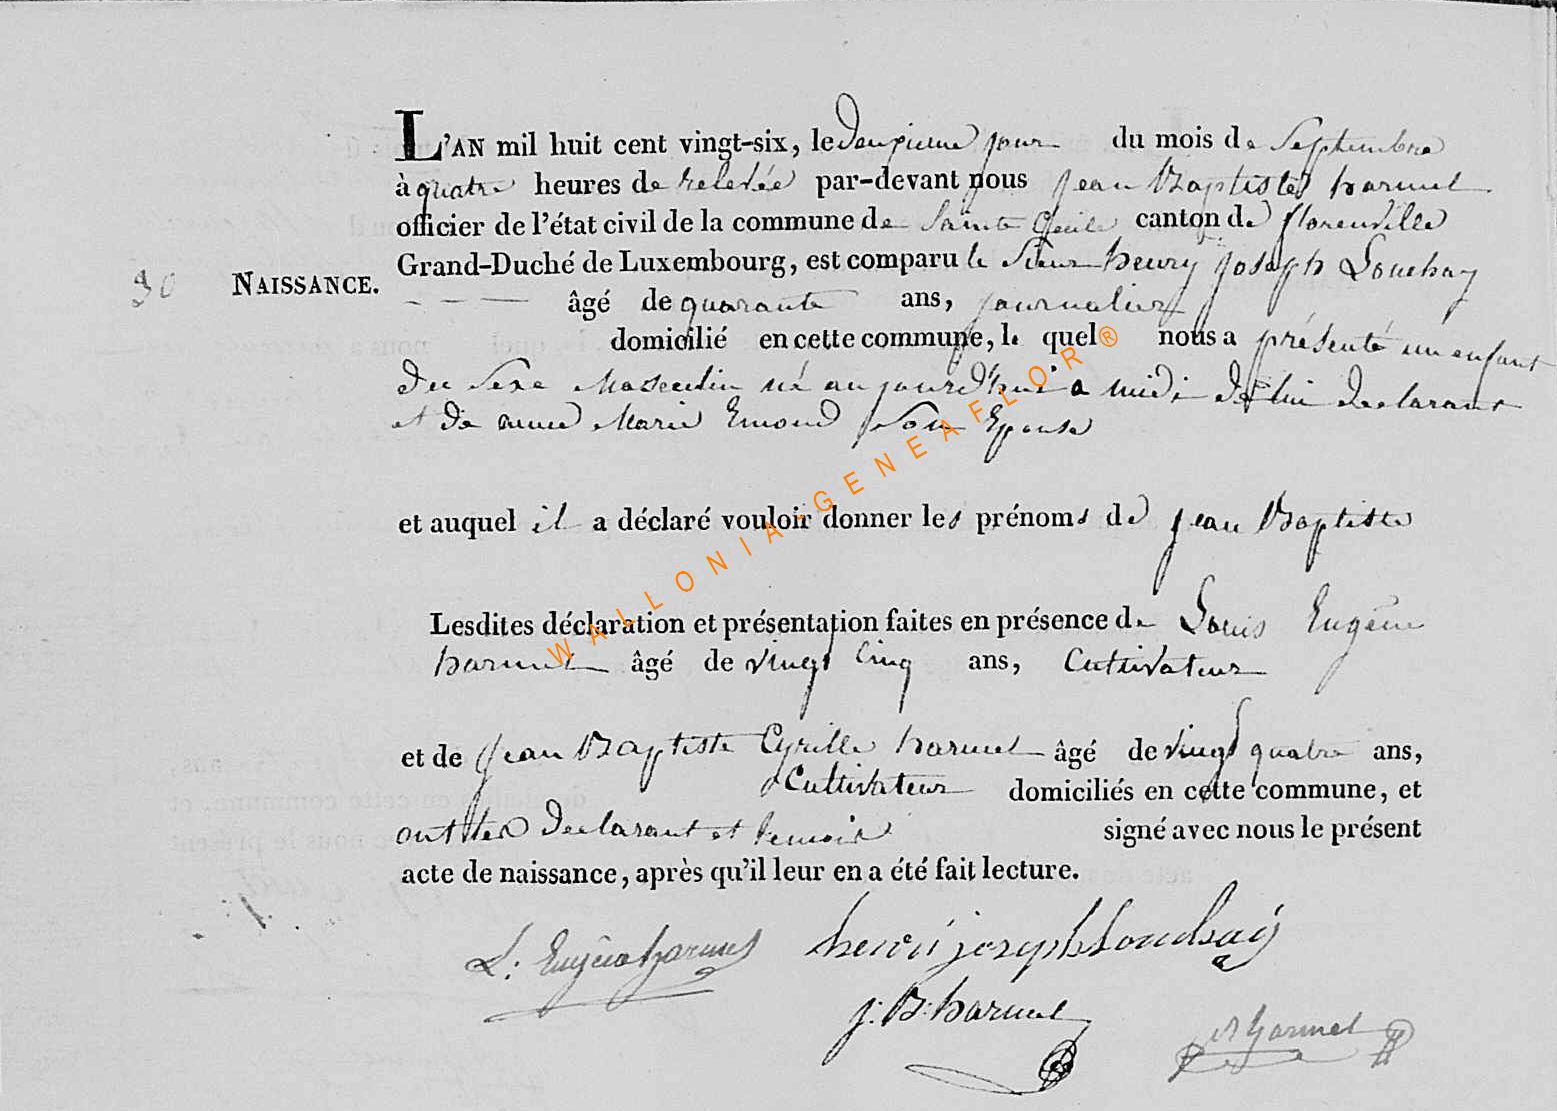 L'AN mil huit cent vingt-six, le deuxieme jour du mois de Septembre
à quatre heures de relevée par-devant nous Jean Baptiste harmel
officier de l'état civil de la commune de Sainte Cecile canton de florenville
Grand-Duché de Luxembourg, est comparu le Sieur henry Joseph Souchay
30 NAISSANCE.
âgé de quarante ans, journalier
domicilié en cette commune, le quel nous a présenté un enfant
du Sexe Masculin né aujourd'hui a midi de lui declarant
et de anne Marie Emond Son Epouse
et auquel il a déclaré vouloir donner les prénoms de Jean Baptiste
Lesdites déclaration et présentation faites en présence de Louis Eugène
harmel âgé de vingt cinq ans, Cultivateur
et de Jean Baptiste Cyrille harmel âgé de vingt quatre ans,
Cultivateur domiciliés en cette commune, et
ont les declarant et temoin signé avec nous le présent
acte de naissance, après qu'il leur en a été fait lecture.
L: Eugène harmel henri joseph Souchay
j: B: harmel
harmel
WALLONIA-GENEAFLOR®